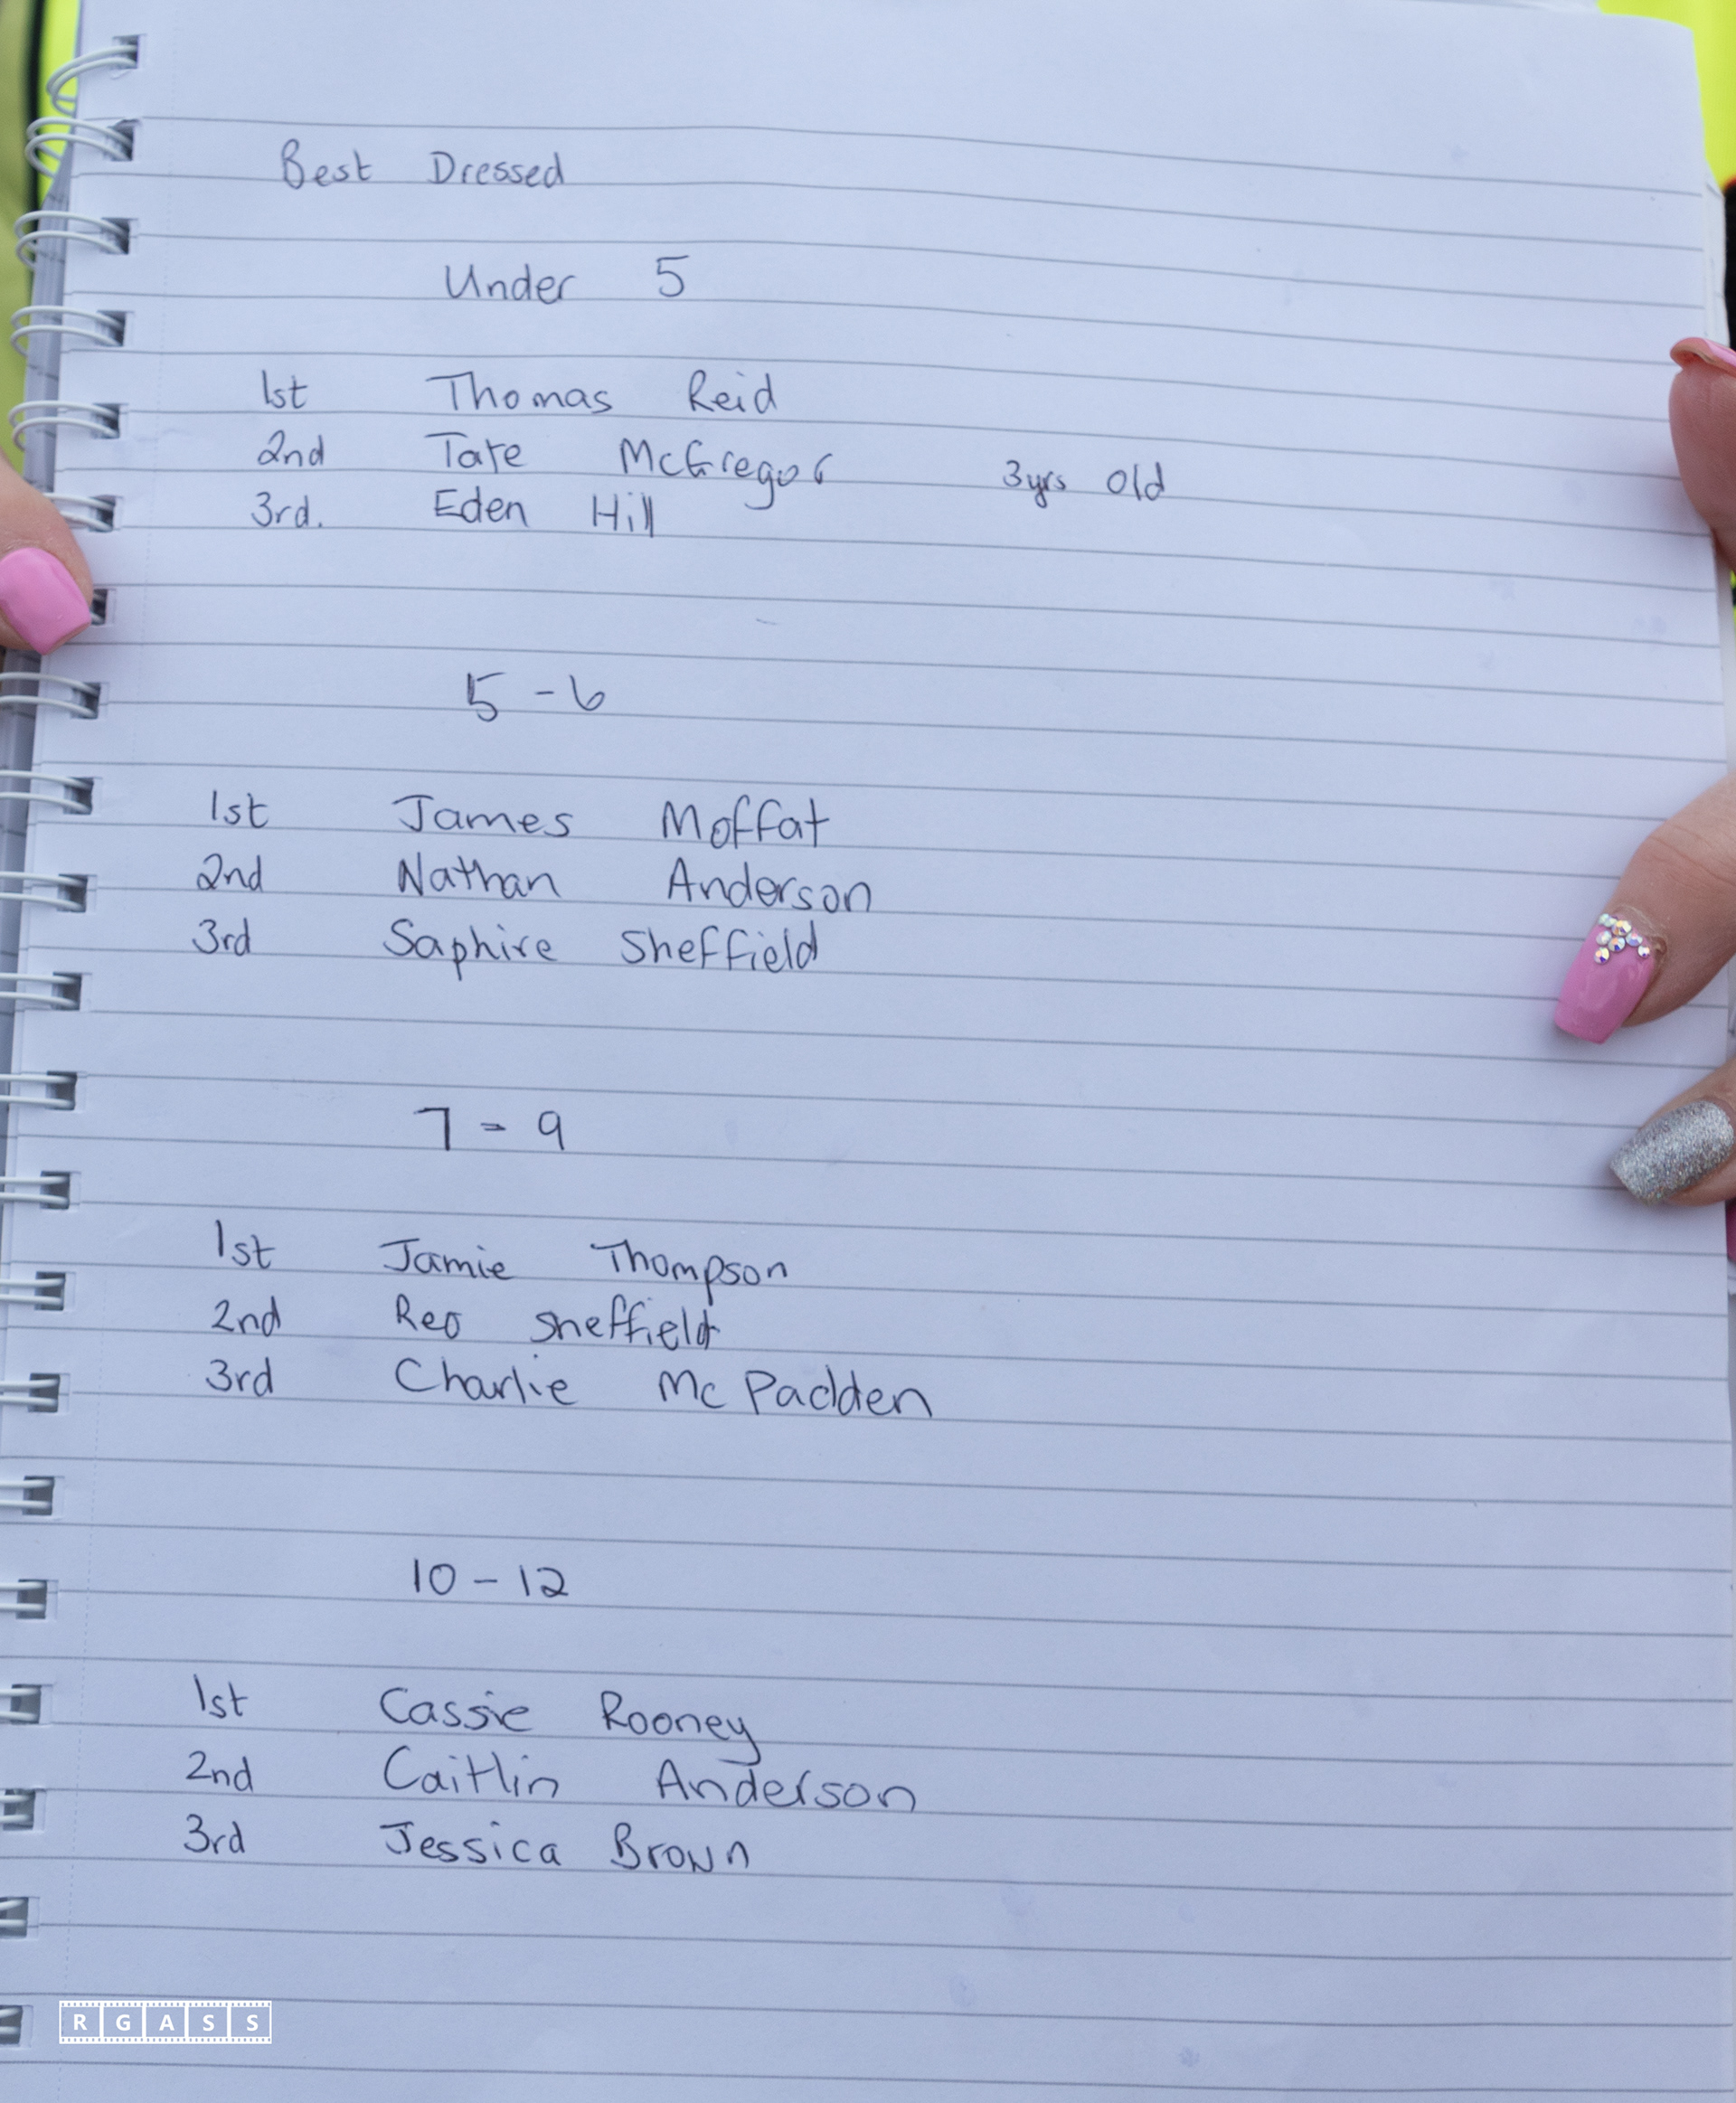 Best Dressed
Under 5
1st Thomas Reid
2nd Tate McGregor 3yrs old
3rd. Eden Hill
5 - 6
1st James Moffat
2nd Nathan Anderson
3rd Saphire Sheffield
7 - 9
1st Jamie Thompson
2nd Reo Sheffield
3rd Charlie Mc Padden
10 - 12
1st Cassie Rooney
2nd Caitlin Anderson
3rd Jessica Brown
RGASS